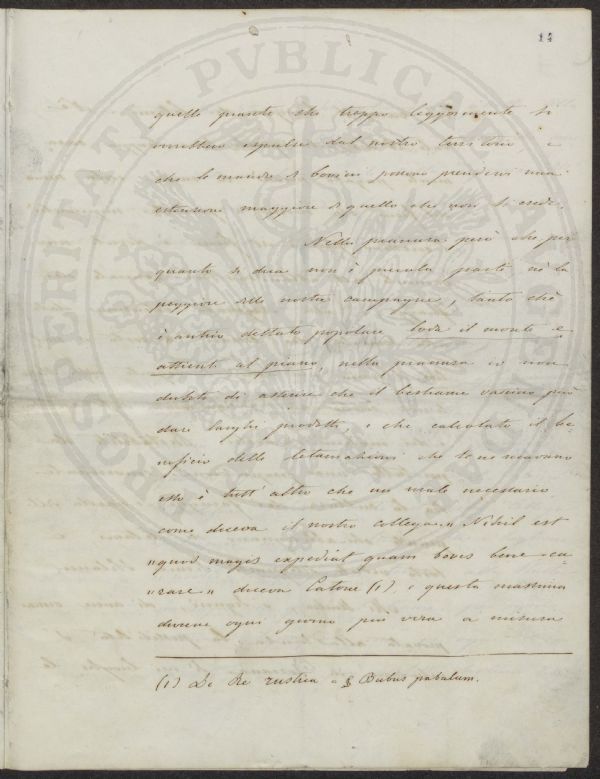 14
quelle quante che troppo leggermente si
vorrebbero espulse dal nostro territorio, e
che le mandre di bovini possono prendervi una
estensione maggiore di quello che non si crede.
Nella pianura però che per
quanto si dica non è piccola parte nè la
peggiore delle nostre campagne, tanto chè
è antico dettato popolare loda il monte e
attienti al piano, nella pianura io non
dubito di asserire che il bestiame vaccino può
dare larghi prodotti, e che calcolato il be-
neficio delle letamazioni che se ne ricavano
esso è tutt' altro che un male necessario
come diceva il nostro collega. „ Nihil est
„ quod magis expediat quam boves bene cu-
„ rare „ diceva Catone (1), e questa massima
diviene ogni giorno più vera a misura
(1) De Re rustica a § Bubus pabulum.
PROSPERITATI PVBLICAE